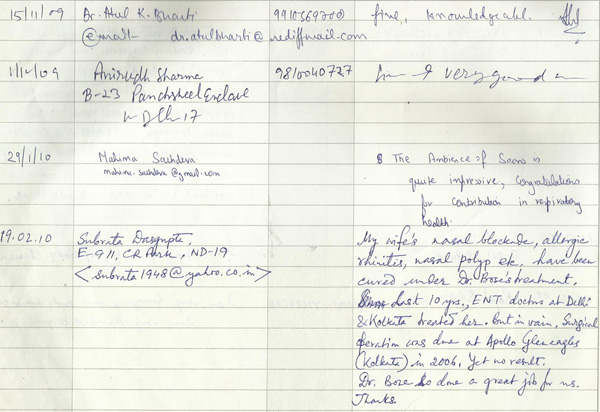 15/11/09 Dr. Atul K. Bharti 9910369700 fine, knowledgeabl.
@email- dr.atulbharti@rediffmail.com
1/12/09 Anirudh Sharma 9810040727 very good
B-23 Panchsheel Enclave
17
29/1/10 Mahima Sachdeva The Ambience of Saans is
mahima.sachdeva@gmail.com quite impressive, Congratulations
for contribution in respiratory
health.
19.02.10 Subrata Dasgupta, My wife's nasal blockade, allergic
E-911, CR Park, ND-19 rhinitis, nasal polyp etc. have been
<subrata1948@yahoo.co.in> cured under Dr. Bose's treatment.
Last 10 yrs., ENT doctors at Delhi
& Kolkata treated her. But in vain, Surgical
operation was done at Apollo Gleneagles
(Kolkata) in 2006. Yet no result.
Dr. Bose so done a great job for us.
Thanks